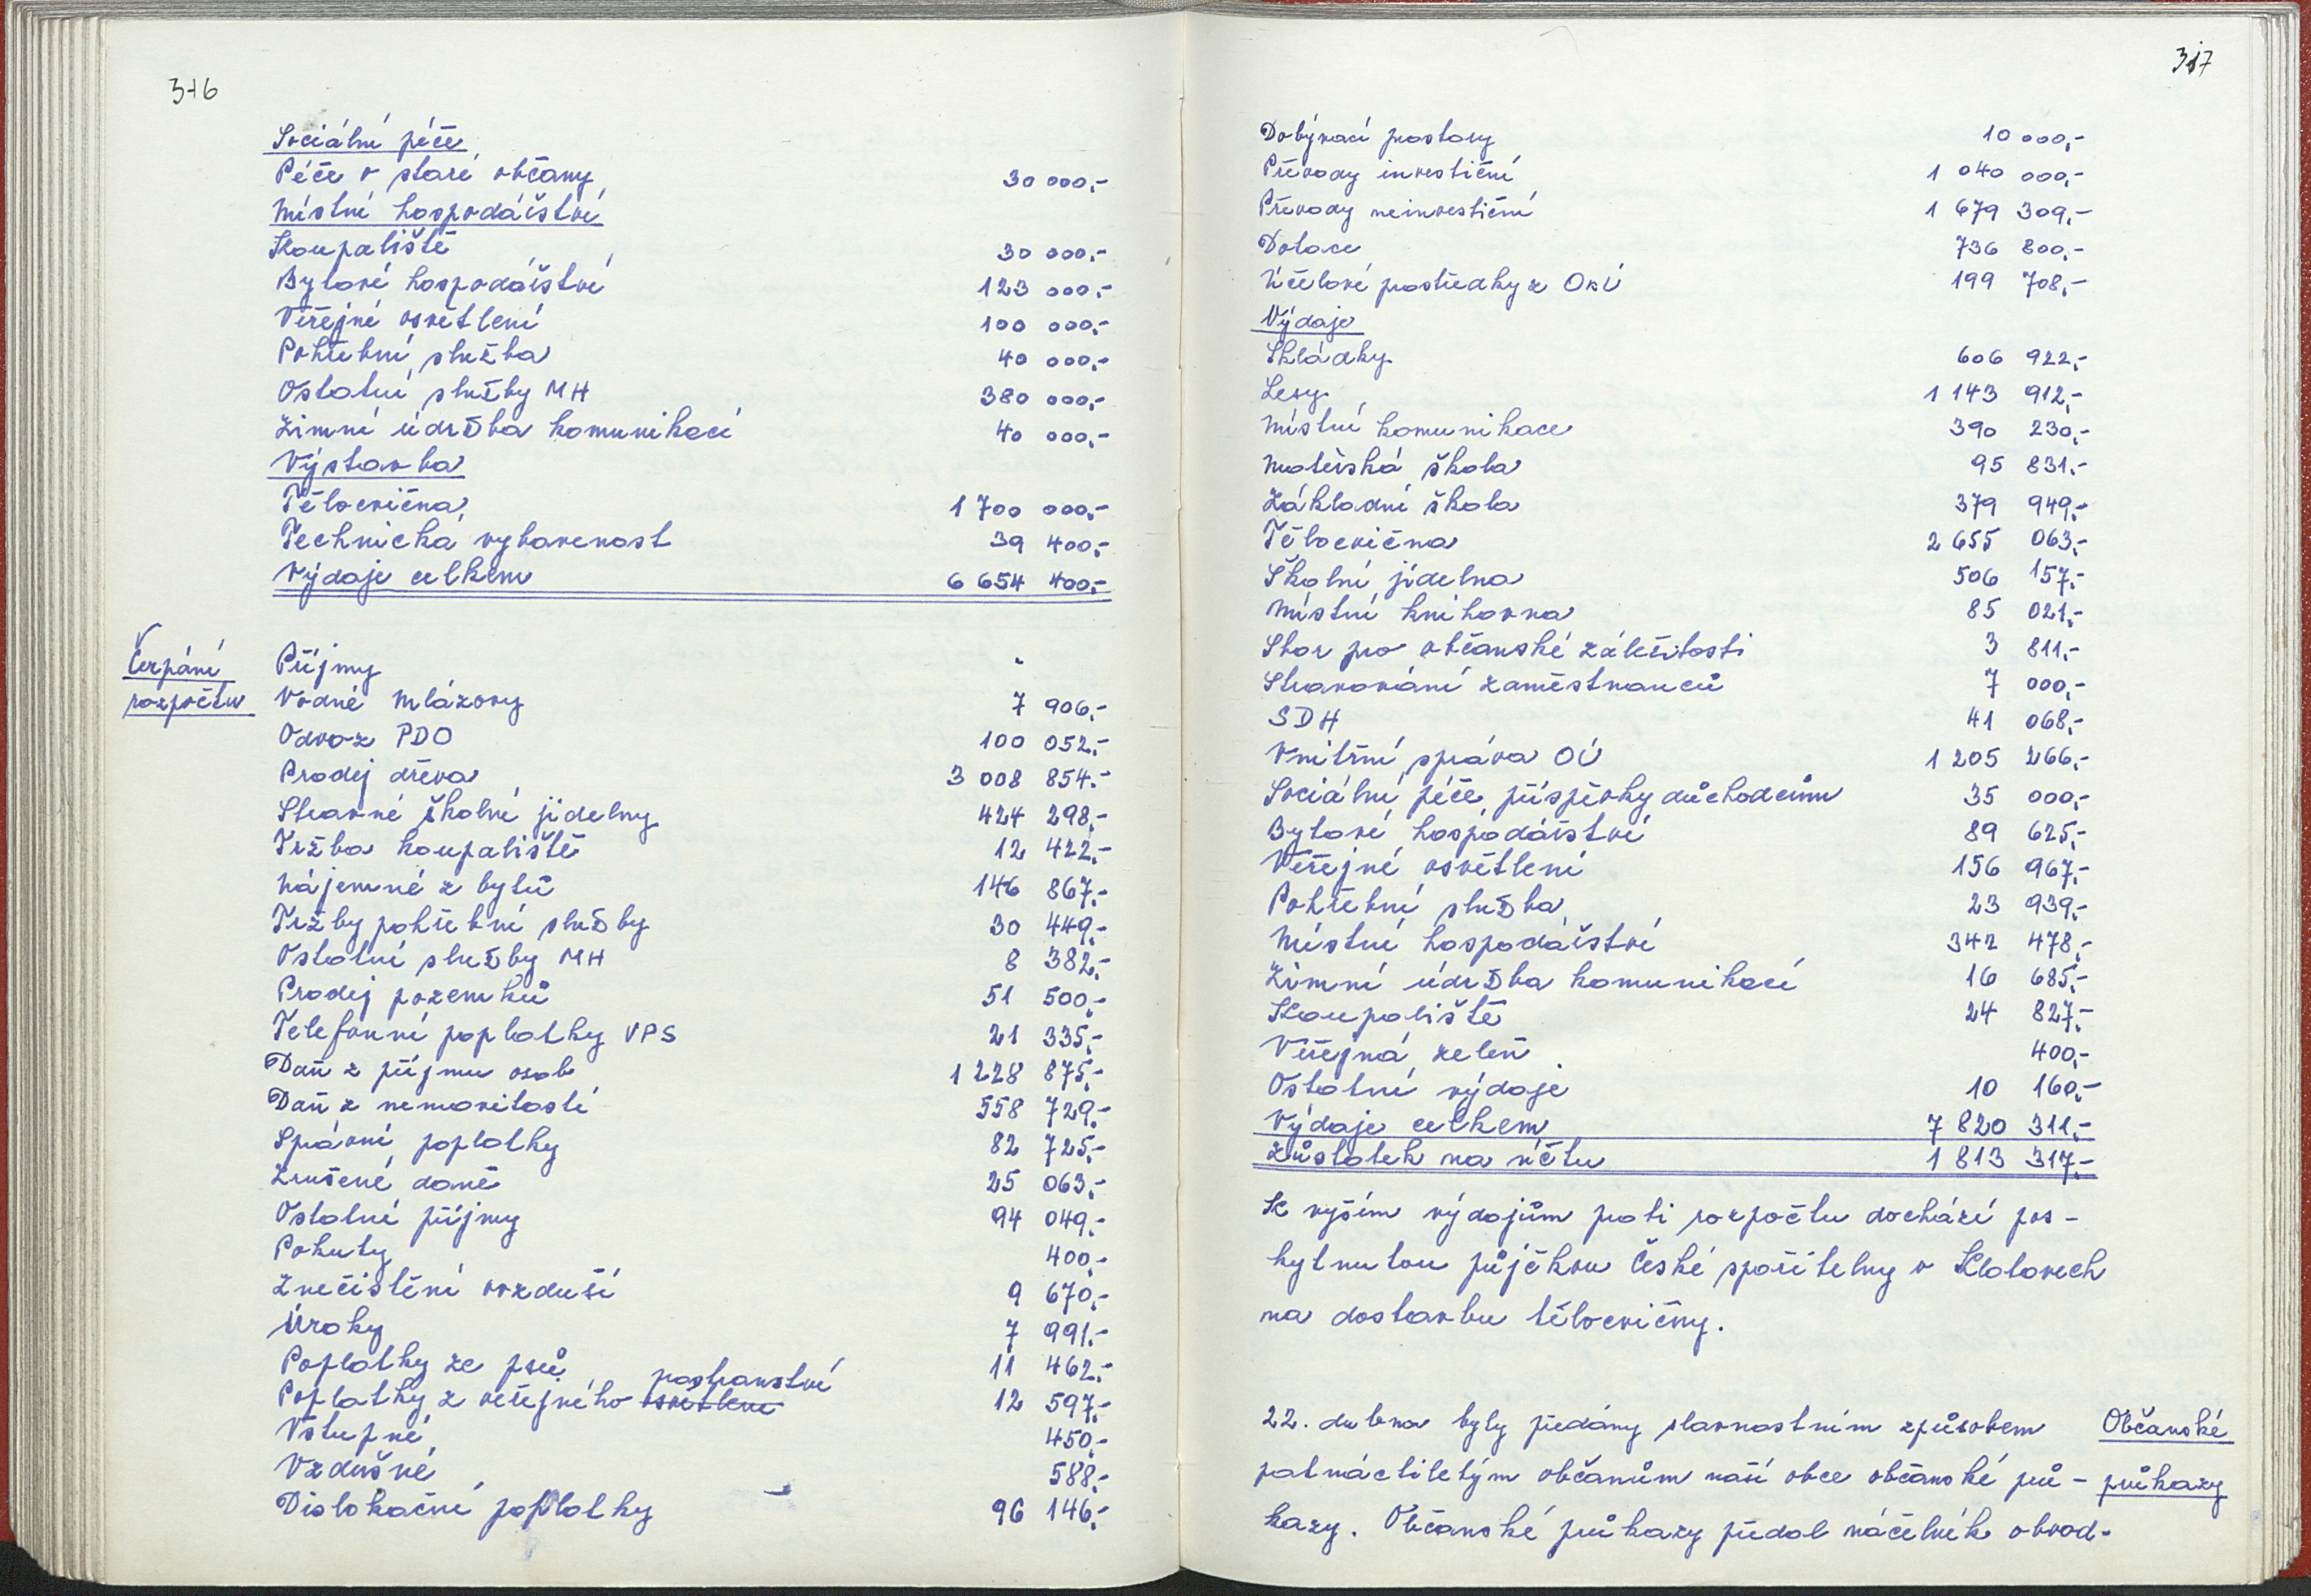 316
Sociální péče
Péče o staré občany 30 000,-
Místní hospodářství
Koupaliště 30 000,-
Bytové hospodářství 123 000,-
Veřejné osvětlení 100 000,-
Pohřební služba 40 000,-
Ostatní služby MH 380 000,-
Zimní údržba komunikací 40 000,-
Výstavba
Tělocvična 1 700 000,-
Technická vybavenost 39 400,-
Výdaje celkem 6 654 400,-
Čerpání
rozpočtu
Příjmy
Vodné Mlázovy 7 906,-
Odvoz PDO 100 052,-
Prodej dřeva 3 008 854,-
Stravné školní jídelny 424 298,-
Tržba koupaliště 12 422,-
Nájemné z bytů 146 867,-
Tržby pohřební služby 30 449,-
Ostatní služby MH 8 382,-
Prodej pozemků 51 500,-
Telefonní poplatky VPS 21 335,-
Daň z příjmu osob 1 228 875,-
Daň z nemovitostí 558 729,-
Správní poplatky 82 725,-
Zrušené daně 25 063,-
Ostatní příjmy 94 049,-
Pokuty 400,-
Znečistění ovzduší 9 670,-
Úroky 7 991,-
Poplatky ze psů 11 462,-
prostranství
Poplatky z veřejného osvětlení 12 597,-
Vstupné 450,-
Vzdušné 588,-
Dislokační poplatky 96 146,-
317
Dobývací prostory 10 000,-
Převody investiční 1 040 000,-
Převody neinvestiční 1 679 309,-
Dotace 736 800,-
Účelové prostředky z OkÚ 199 708,-
Výdaje
Skládky 606 922,-
Lesy 1 143 912,-
Místní komunikace 390 230,-
Mateřská škola 95 831,-
Základní škola 379 949,-
Tělocvična 2 655 063,-
Školní jídelna 506 157,-
Místní knihovna 85 021,-
Sbor pro občanské záležitosti 3 811,-
Stravování zaměstnanců 7 000,-
SDH 41 068,-
Vnitřní správa OÚ 1 205 266,-
Sociální péče, příspěvky důchodcům 35 000,-
Bytové hospodářství 89 625,-
Veřejné osvětlení 156 967,-
Pohřební služba 23 939,-
Místní hospodářství 342 478,-
Zimní údržba komunikací 16 685,-
Koupaliště 24 827,-
Veřejná zeleň 400,-
Ostatní výdaje 10 160,-
Výdaje celkem 7 820 311,-
Zůstatek na účtu 1 813 317,-
K vyším výdajům proti rozpočtu dochází pos-
kytnutou půjčkou České spořitelny v Klatovech
na dostavbu tělocvičny.
22. dubna byly předány slavnostním způsobem
patnáctiletým občanům naší obce občanské prů-
kazy. Občanské průkazy předal náčelník obvod-
Občanské
průkazy